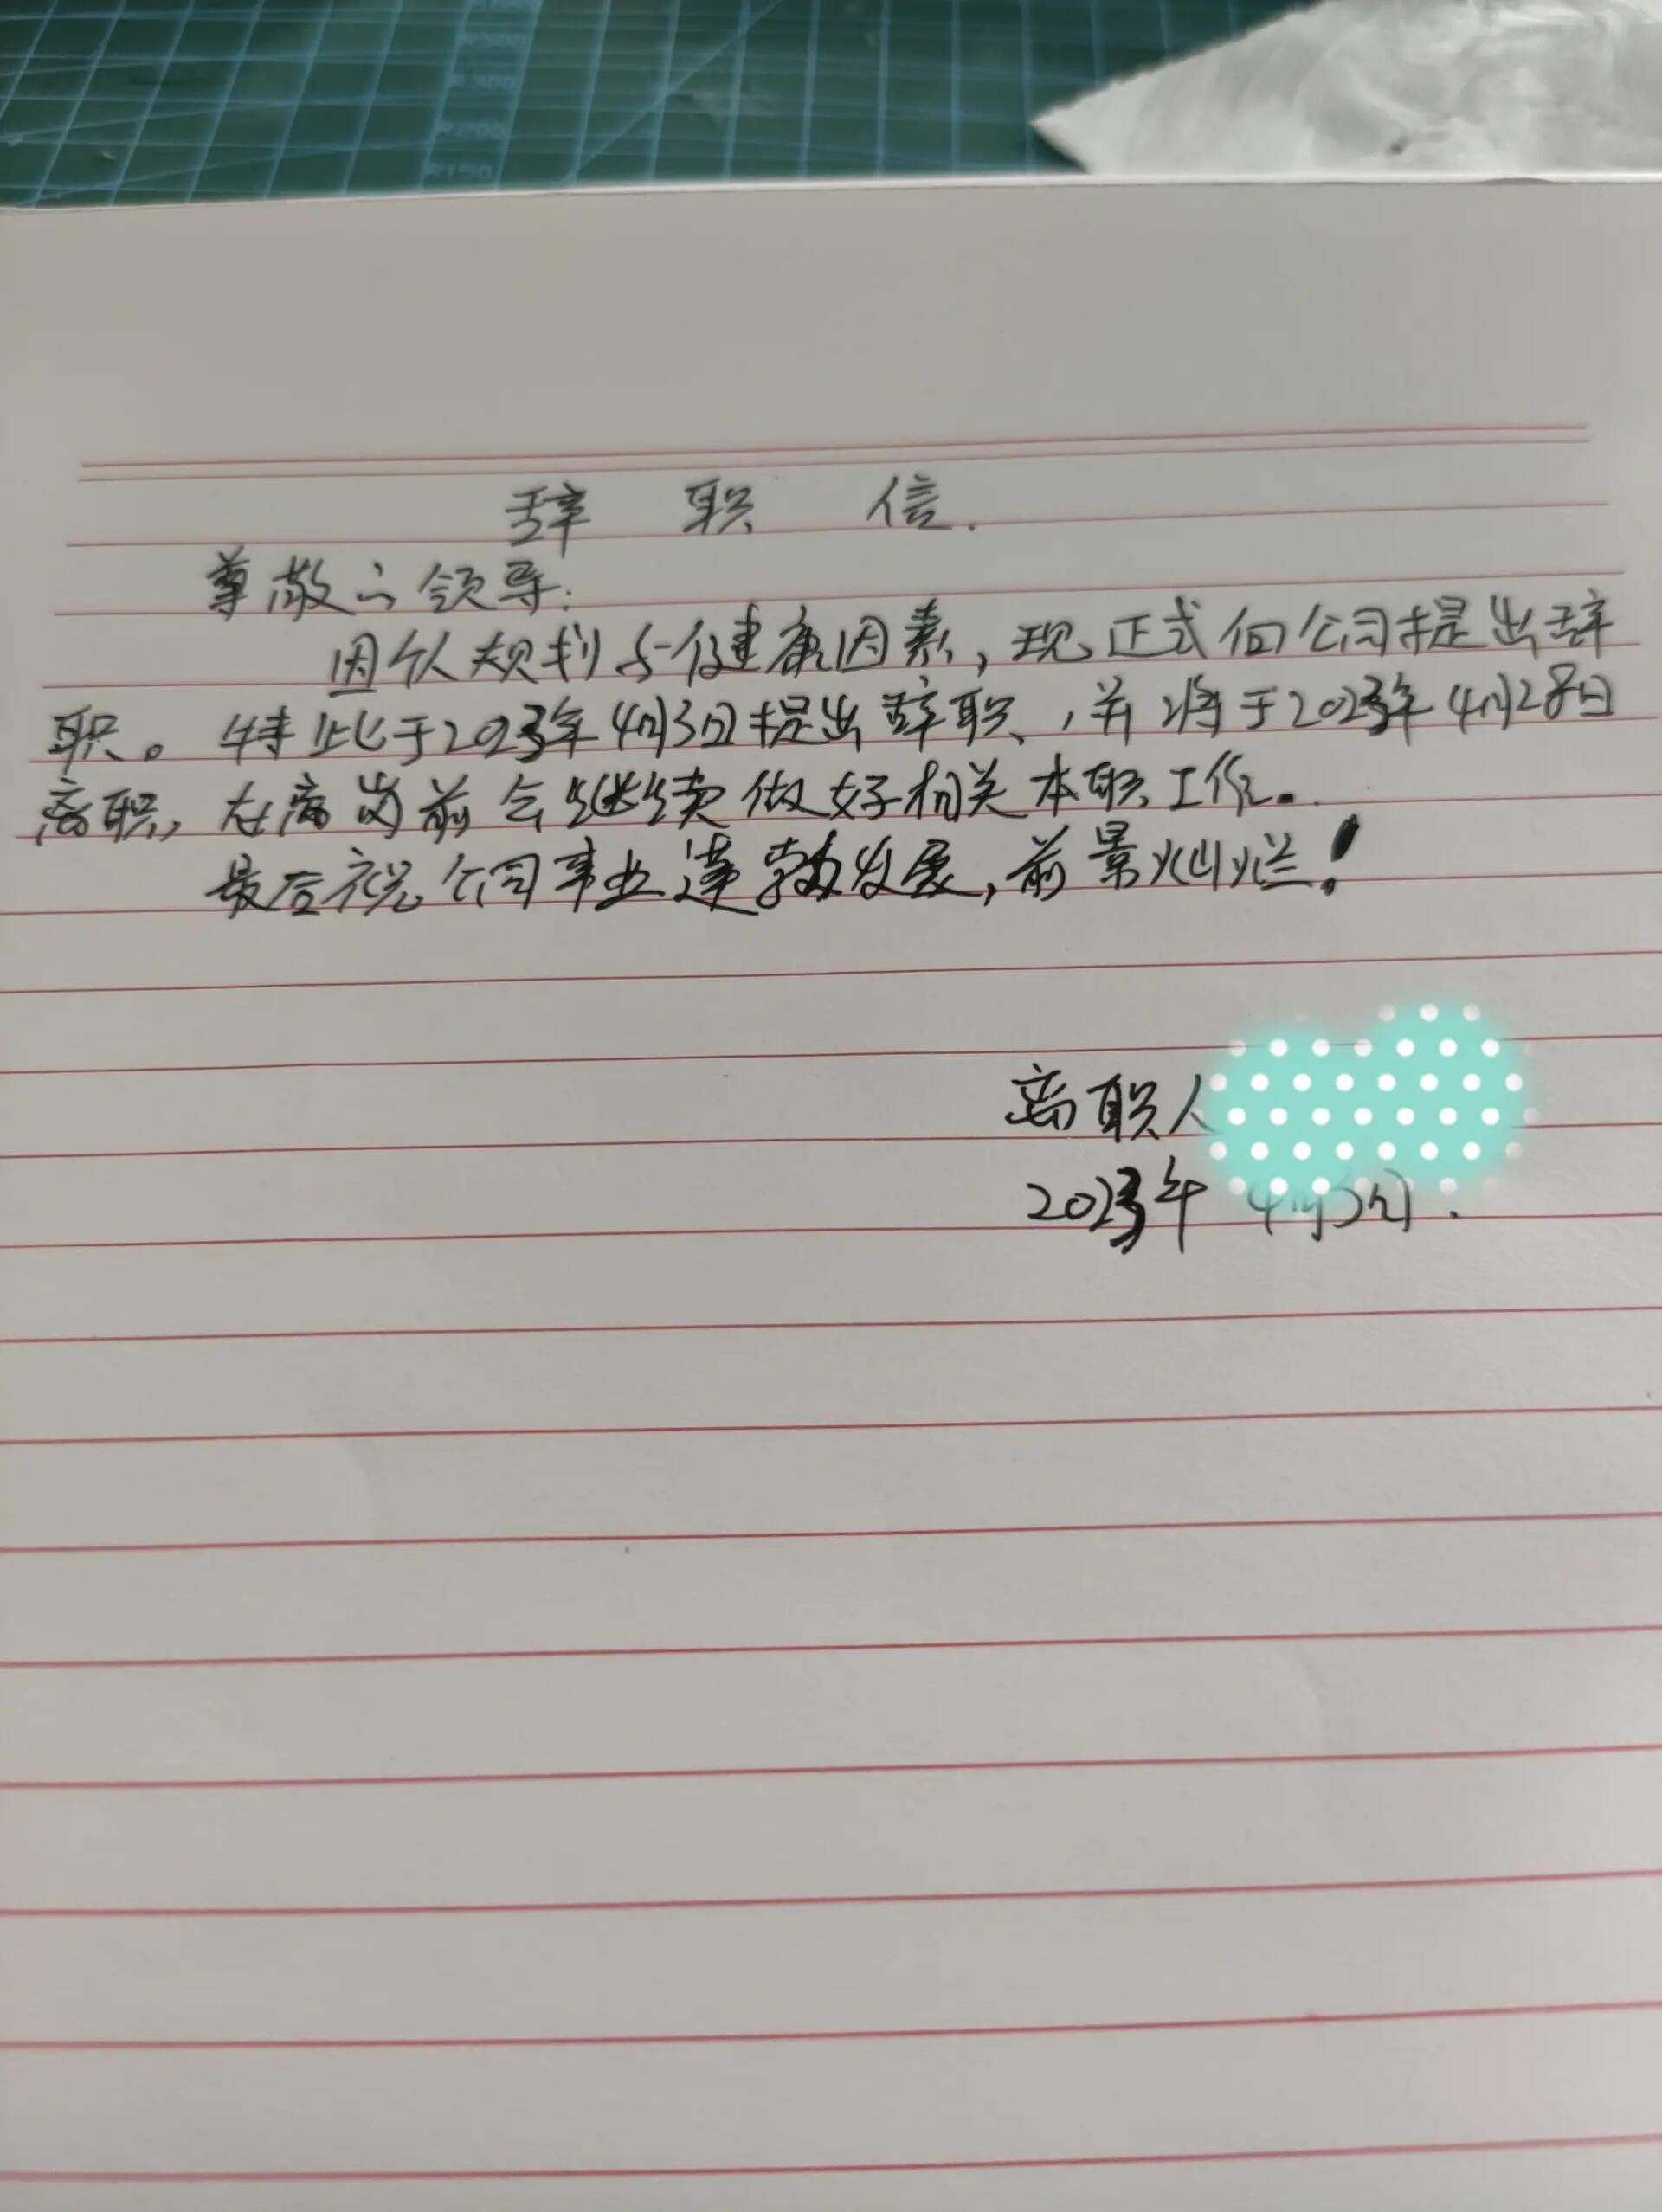 R300
R200
R150
辞职信.
尊敬的领导:
因个人规划与健康因素,现正式向公司提出辞
职。特此于2023年4月3日提出辞职,并将于2023年4月28日
离职,在离岗前会继续做好相关本职工作。
最后祝公司事业蓬勃发展,前景灿烂!
离职人
2023年4月3日.